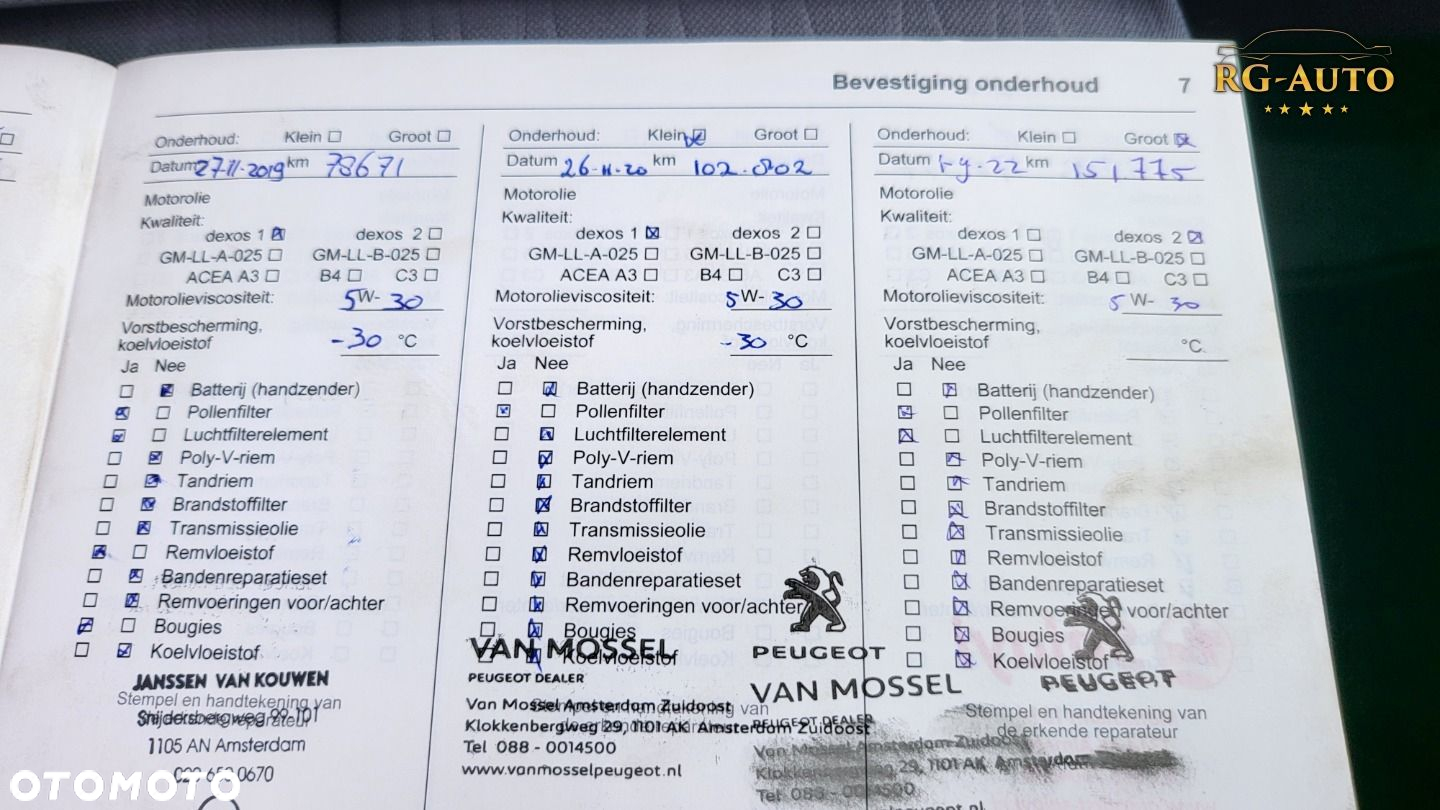 Bevestiging onderhoud 7
RG-AUTO
Onderhoud: Klein Groot
Datum 27-11-2019 km 78671
Motorolie
Kwaliteit:
dexos 1 dexos 2
GM-LL-A-025 GM-LL-B-025
ACEA A3 B4 C3
Motorolieviscositeit: 5W-30
Vorstbescherming,
koelvloeistof -30 °C
Ja Nee
Batterij (handzender)
Pollenfilter
Luchtfilterelement
Poly-V-riem
Tandriem
Brandstoffilter
Transmissieolie
Remvloeistof
Bandenreparatieset
Remvoeringen voor/achter
Bougies
Koelvloeistof
JANSSEN VAN KOUWEN
Stempel en handtekening van
de erkende reparateur
Snijdersbergweg 99-101
1105 AN Amsterdam
Onderhoud: Klein Groot
Datum 26-11-20 km 102.802
Motorolie
Kwaliteit:
dexos 1 dexos 2
GM-LL-A-025 GM-LL-B-025
ACEA A3 B4 C3
Motorolieviscositeit: 5W-30
Vorstbescherming,
koelvloeistof -30 °C
Ja Nee
Batterij (handzender)
Pollenfilter
Luchtfilterelement
Poly-V-riem
Tandriem
Brandstoffilter
Transmissieolie
Remvloeistof
Bandenreparatieset
Remvoeringen voor/achter
Bougies
Koelvloeistof
VAN MOSSEL PEUGEOT
PEUGEOT DEALER
Stempel en handtekening van
de erkende reparateur
Van Mossel Amsterdam Zuidoost
Klokkenbergweg 29, 1101 AK Amsterdam Zuidoost
Tel 088 - 0014500
www.vanmosselpeugeot.nl
Onderhoud: Klein Groot
Datum km 151,775
Motorolie
Kwaliteit:
dexos 1 dexos 2
GM-LL-A-025 GM-LL-B-025
ACEA A3 B4 C3
Motorolieviscositeit: 5 W- 30
Vorstbescherming,
koelvloeistof °C
Ja Nee
Batterij (handzender)
Pollenfilter
Luchtfilterelement
Poly-V-riem
Tandriem
Brandstoffilter
Transmissieolie
Remvloeistof
Bandenreparatieset
Remvoeringen voor/achter
Bougies
Koelvloeistof
PEUGEOT
Stempel en handtekening van
de erkende reparateur
VAN MOSSEL
PEUGEOT DEALER
Van Mossel Amsterdam Zuidoost
Klokkenbergweg 29, 1101 AK Amsterdam
Tel 088 - 0014500
OTOMOTO